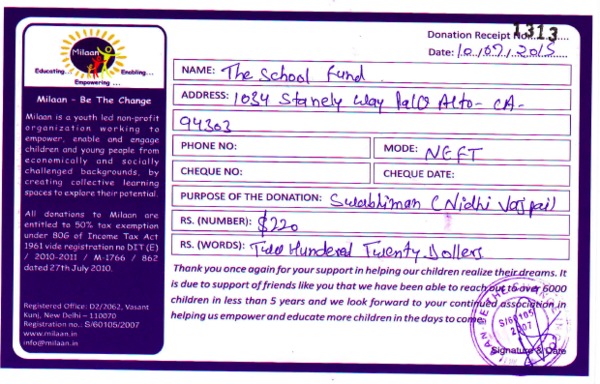 Donation Receipt No. 1313
Date: 10/07/2015
Milaan
Educating... Enabling...
Empowering ...
Milaan - Be The Change
Milaan is a youth led non-profit
organization working to
empower, enable and engage
children and young people from
economically and socially
challenged backgrounds, by
creating collective learning
spaces to explore their potential.
All donations to Milaan are
entitled to 50% tax exemption
under 80G of Income Tax Act
1961 vide registration no DIT (E)
/ 2010-2011 / M-1766 / 862
dated 27th July 2010.
Registered Office: D2/7062, Vasant
Kunj, New Delhi – 110070
Registration no.. S/60105/2007
www.milaan.in
info@milaan.in
NAME: The School Fund
ADDRESS: 1034 Stanely Way Palo Alto - CA -
94303
PHONE NO:
MODE: NEFT
CHEQUE NO:
CHEQUE DATE:
PURPOSE OF THE DONATION: Swabhiman (Nidhi Vajpai)
RS. (NUMBER): $220
RS. (WORDS): Two Hundered Twenty Dollers
Thank you once again for your support in helping our children realize their dreams. It
is due to support of friends like you that we have been able to reach out to over 6000
children in less than 5 years and we look forward to your continued association in
helping us empower and educate more children in the days to come
S/60105
2007
Signature & Date